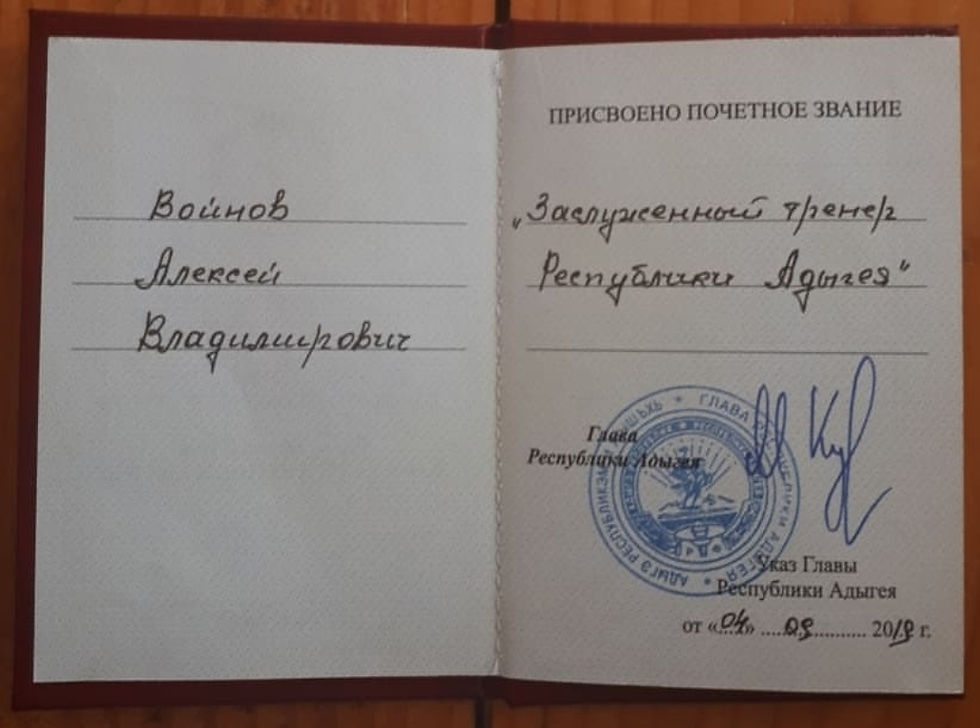 Войнов
Алексей
Владимирович
ПРИСВОЕНО ПОЧЕТНОЕ ЗВАНИЕ
„Заслуженный тренер
Республики Адыгея“
Глава
Республики Адыгея
ГЛАВА РЕСПУБЛИКИ АДЫГЕЯ * АДЫГЭ РЕСПУБЛИКЭМ
Указ Главы
Республики Адыгея
от «04» 09 2019 г.